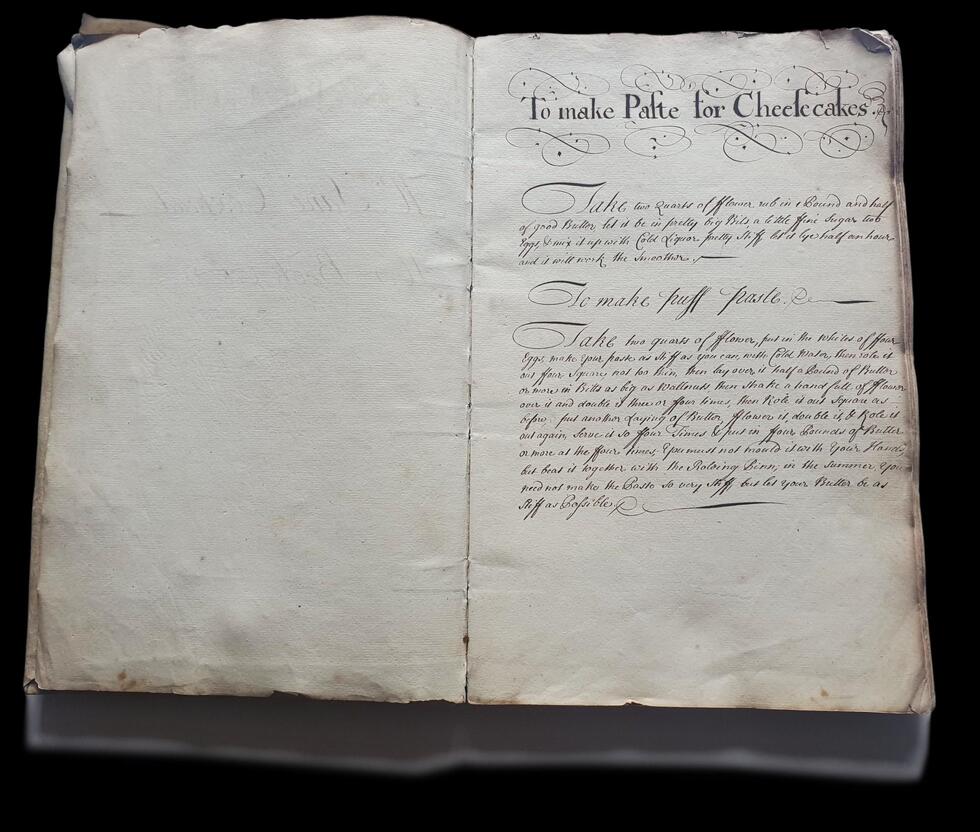 To make Paſte for Cheeſecakes.
Take two Quarts of fflower, rub in a Pound and half
of good Butter, let it be in pretty big Bits, a little ffine Sugar, two
Eggs, & mix it up with Cold Liquor pretty Stiff, let it lye half an hour
and it will work the Smoother.
To make puff paste.
Take two quarts of fflower, put in the Whites of ffour
Eggs, make your paste as Stiff as you can, with Cold Water, then role it
out ffour Square not too thin, then lay over it half a Pound of Butter
or more in Bitts as big as Wallnuts then Shake a handfull of fflower
over it and double it three or four times, then Role it out Square as
before, put another Laying of Butter, fflower it, double it, & Role it
out again, Serve it so ffour Times & put in ffour Pounds of Butter
or more at the ffour times, you must not mould it with your Hands,
but beat it together with the Roleing Pinn, in the summer you
need not make the Paste so very stiff, but let your Butter be as
Stiff as Poſsible.